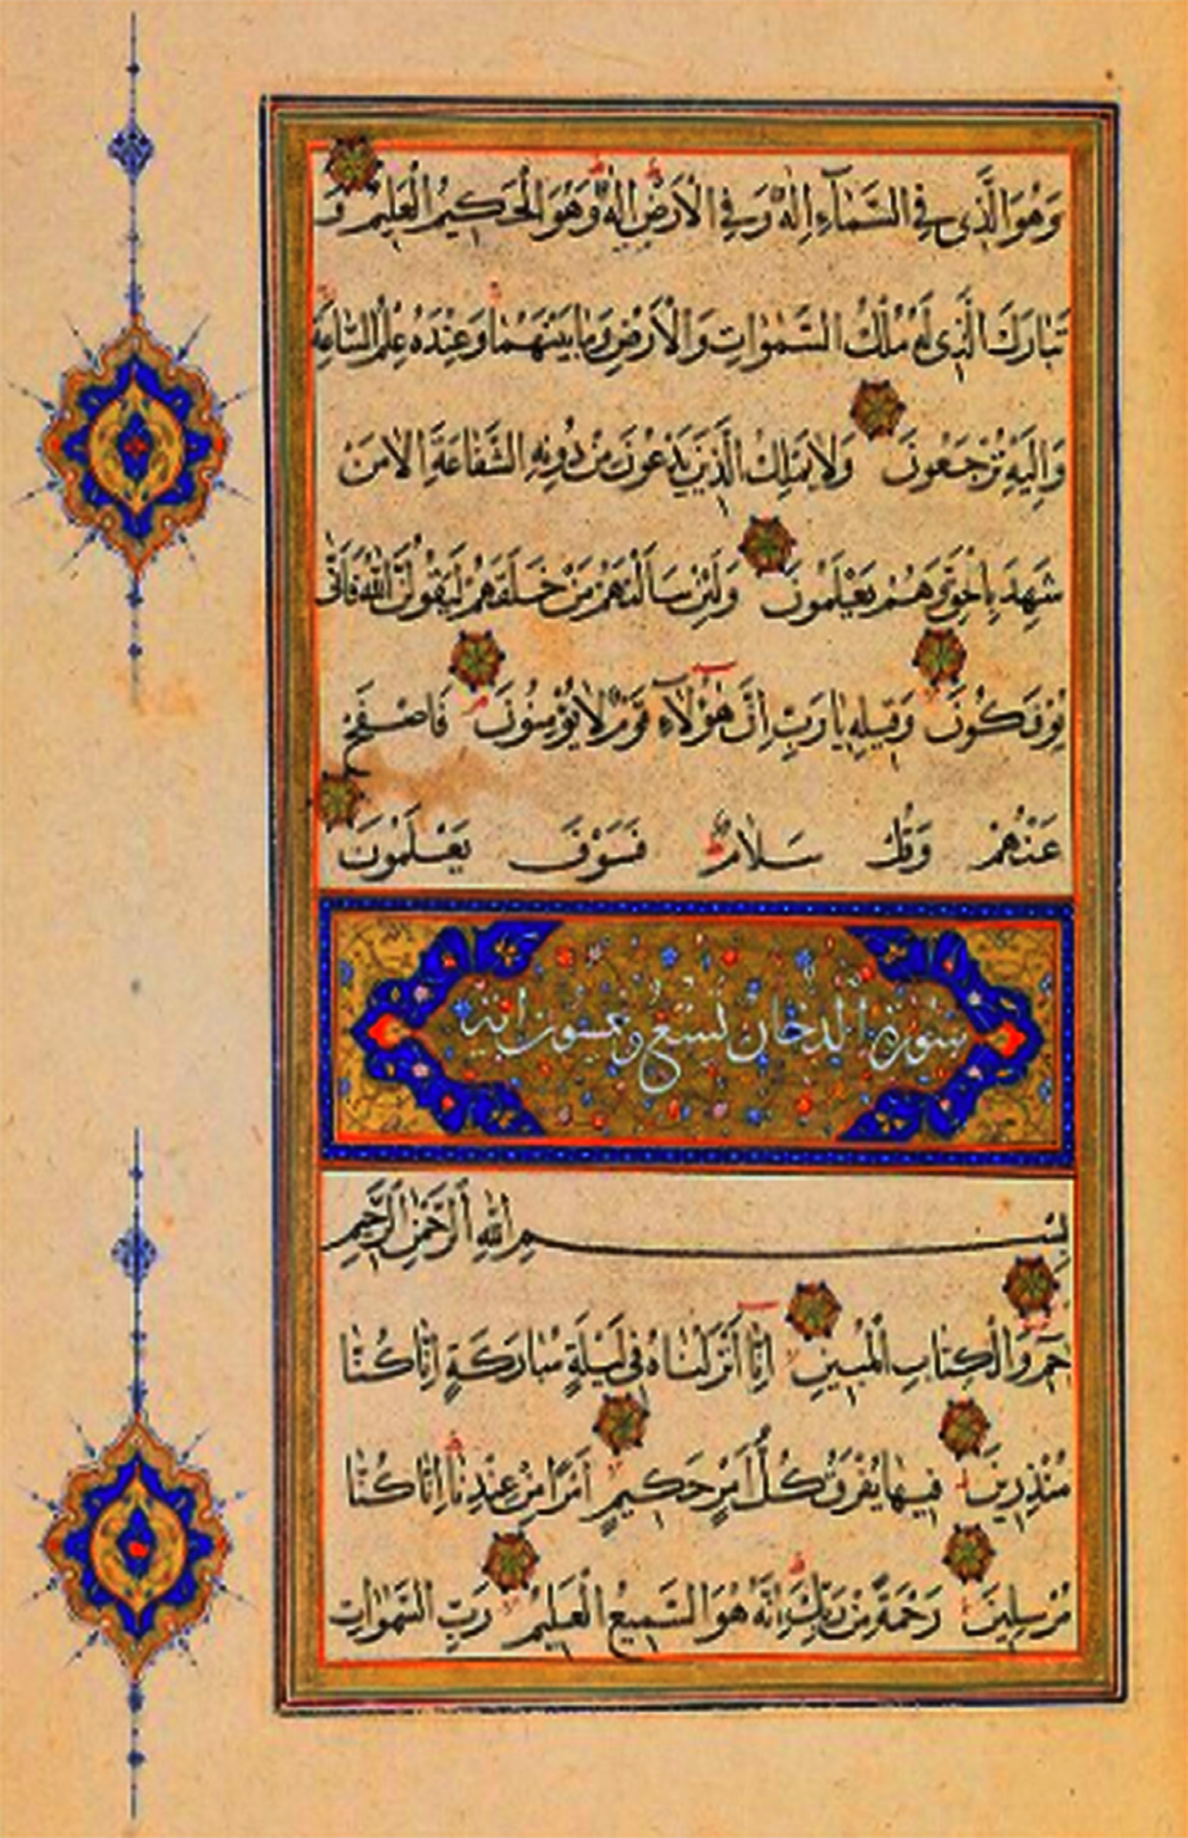 وَهُوَ الَّذِى فِى السَّمَآءِ اِلٰهٌ وَفِى الْاَرْضِ اِلٰهٌ وَهُوَ الْحَكِيمُ الْعَلِيمُ وَ
تَبَارَكَ الَّذِى لَهُ مُلْكُ السَّمٰوَاتِ وَالْاَرْضِ وَمَا بَيْنَهُمَا وَعِنْدَهُ عِلْمُ السَّاعَةِ
وَاِلَيْهِ تُرْجَعُونَ وَلَا يَمْلِكُ الَّذِينَ يَدْعُونَ مِنْ دُونِهِ الشَّفَاعَةَ اِلَّا مَنْ
شَهِدَ بِالْحَقِّ وَهُمْ يَعْلَمُونَ وَلَئِنْ سَاَلْتَهُمْ مَنْ خَلَقَهُمْ لَيَقُولُنَّ اللّٰهُ فَاَنّٰى
يُؤْفَكُونَ وَقِيلِهِ يَا رَبِّ اِنَّ هٰؤُلَآءِ قَوْمٌ لَا يُؤْمِنُونَ فَاصْفَحْ
عَنْهُمْ وَقُلْ سَلَامٌ فَسَوْفَ يَعْلَمُونَ
سورة الدخان تسع وخمسون آية
بِسْمِ اللّٰهِ الرَّحْمٰنِ الرَّحِيمِ
حٰمٓ وَالْكِتَابِ الْمُبِينِ اِنَّا اَنْزَلْنَاهُ فِى لَيْلَةٍ مُبَارَكَةٍ اِنَّا كُنَّا
مُنْذِرِينَ فِيهَا يُفْرَقُ كُلُّ اَمْرٍ حَكِيمٍ اَمْرًا مِنْ عِنْدِنَا اِنَّا كُنَّا
مُرْسِلِينَ رَحْمَةً مِنْ رَبِّكَ اِنَّهُ هُوَ السَّمِيعُ الْعَلِيمُ رَبِّ السَّمٰوَاتِ